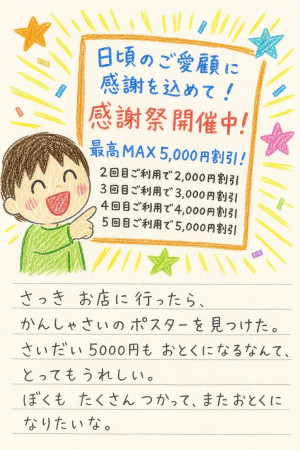 日頃のご愛顧に
感謝を込めて!
感謝祭開催中!
最高MAX5,000円割引!
2回目ご利用で2,000円割引
3回目ご利用で3,000円割引
4回目ご利用で4,000円割引
5回目ご利用で5,000円割引
さっき お店に行ったら、
かんしゃさいのポスターを見つけた。
さいだい5000円も おとくになるなんて、
とってもうれしい。
ぼくも たくさんつかって、またおとくに
なりたいな。